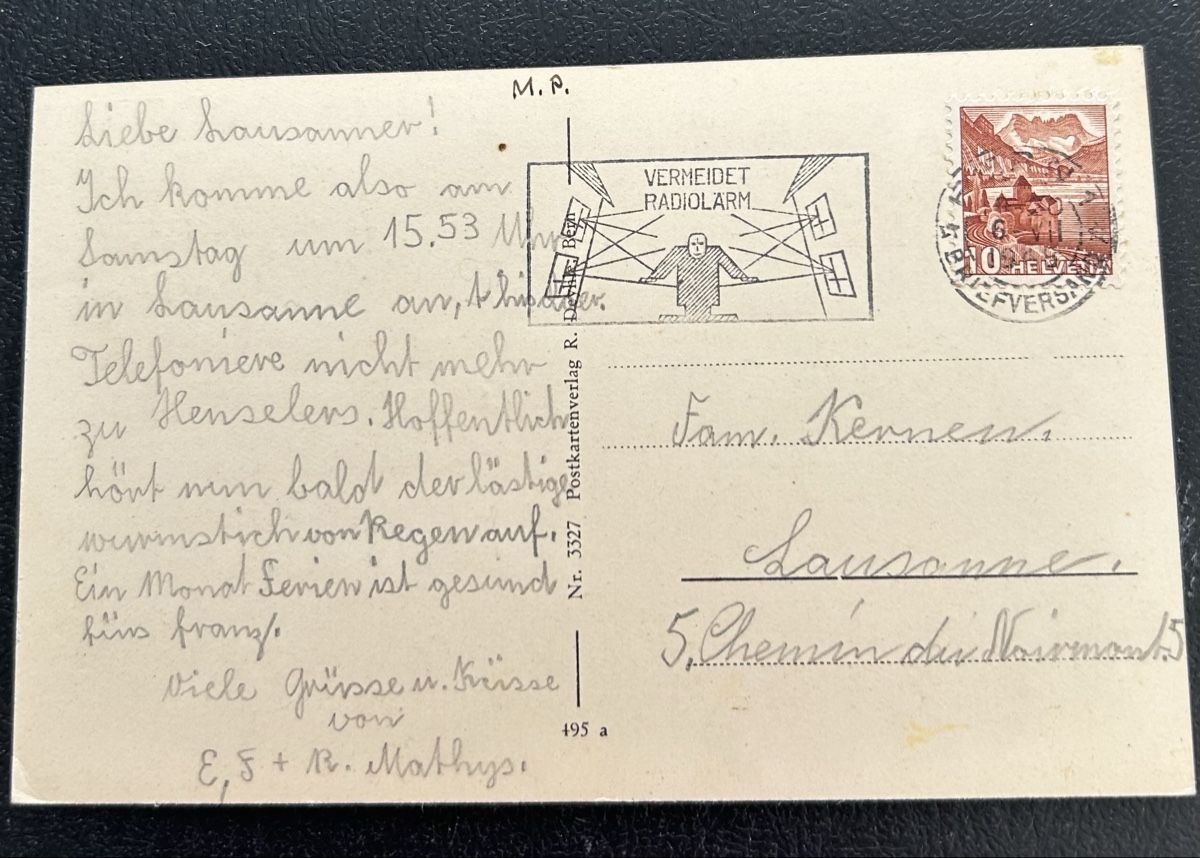 M. P.
Liebe Lausanner!
Ich komme also am
Samstag um 15.53 Uhr
in Lausanne an,
Telefoniere nicht mehr
zu Henselers. Hoffentlich
hört nun bald der lästige
wurmstich von Regen auf.
Ein Monat Ferien ist gesund
fürs franz.
Viele Grüsse u. Küsse
von
E, F + R. Mathys.
Nr. 3327 Postkartenverlag R. Bern
495 a
VERMEIDET
RADIOLÄRM
BRIEFVERSAND
6. VII
10 HELVETIA
Fam. Kernen.
Lausanne.
5, Chemin du Noirmont 5